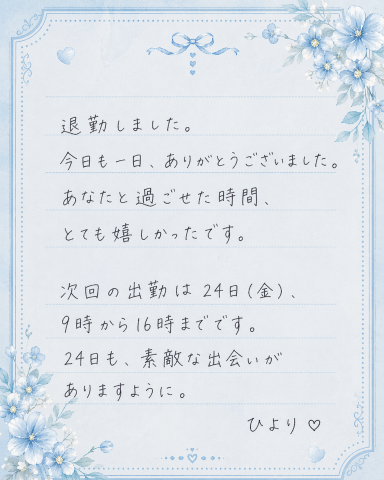 退勤しました。
今日も一日、ありがとうございました。
あなたと過ごせた時間、
とても嬉しかったです。
次回の出勤は 24日(金)、
9時から16時までです。
24日も、素敵な出会いが
ありますように。
ひより♡